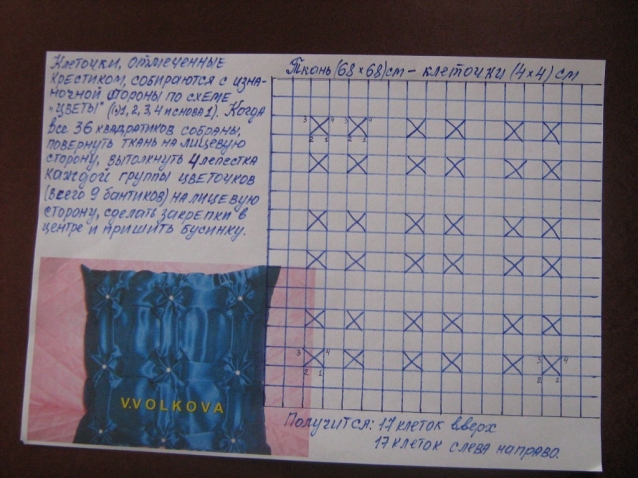 Клеточки, отмеченные
крестиком, собираются с изна-
ночной стороны по схеме
"ЦВЕТЫ" (1, 2, 3, 4 и снова 1). Когда
все 36 квадратиков собраны,
повернуть ткань на лицевую
сторону, вытолкнуть 4 лепестка
каждой группы цветочков
(всего 9 бантиков) на лицевую
сторону, сделать закрепки в
центре и пришить бусинку.
Ткань (68×68) см - клеточки (4×4) см
3 4 3 4
2 1 2 1
3 4 3 4
2 1 2 1
V.VOLKOVA
Получится: 17 клеток вверх
17 клеток слева направо.